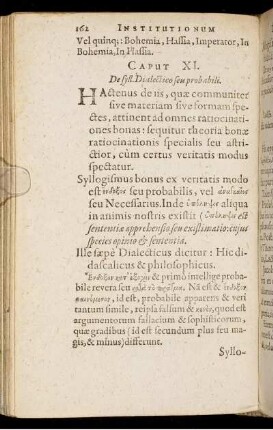 162 INSTITUTIONUM
Vel quinq;: Bohemia, Hassia, Imperator, In
Bohemia, In Hassia.
CAPUT XI.
De syll. Dialectico seu probabili.
HActenus de iis, quæ communiter
sive materiam sive formam spe-
ctes, attinent ad omnes ratiocinati-
ones bonas: sequitur theoria bonæ
ratiocinationis specialis seu astri-
ctior, cùm certus veritatis modus
spectatur.
Syllogismus bonus ex veritatis modo
est seu probabilis, vel
seu Necessarius. Inde aliqua
in animis nostris existit ( est
sententiæ apprehensio seu existimatio: cujus
species opinio & sententia.
Ille sæpè Dialecticus dicitur: Hic di-
dascalicus & philosophicus.
primò intellige proba-
bile revera seu Nã est &
id est, probabile apparens & veri
tantum simile, reipsâ falsum & quod est
argumentorum fallacium & sophisticorum,
quæ gradibus (id est secundum plus seu ma-
gis, & minus) differunt.
Syllo-